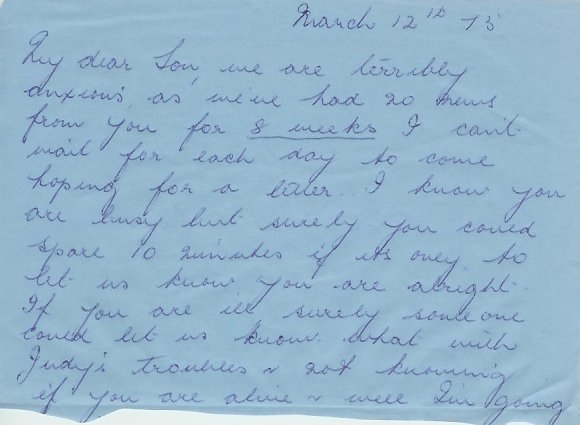 March 12th 75
My dear Son, we are terribly
anxious, as we've had no news
from you for 8 weeks I can't
wait for each day to come
hoping for a letter. I know you
are busy but surely you could
spare 10 minutes if its only to
let us know you are alright.
If you are ill surely someone
could let us know. what with
Judy's troubles & not knowing
if you are alive & well I'm going